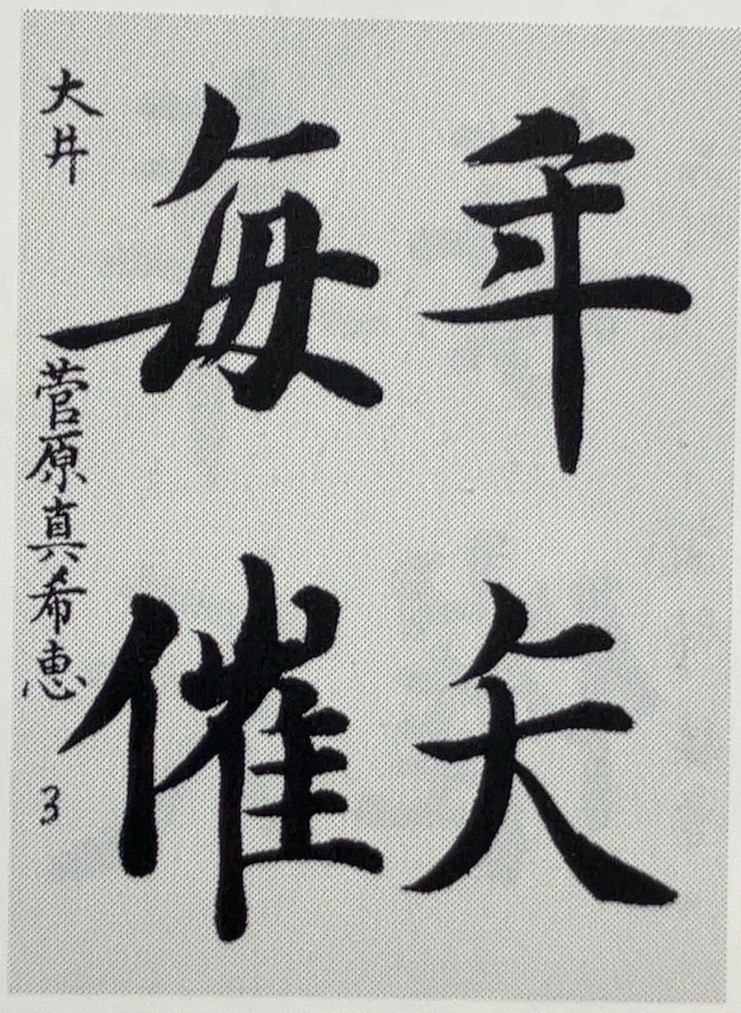 年矢
毎催
大井 菅原真希恵 3